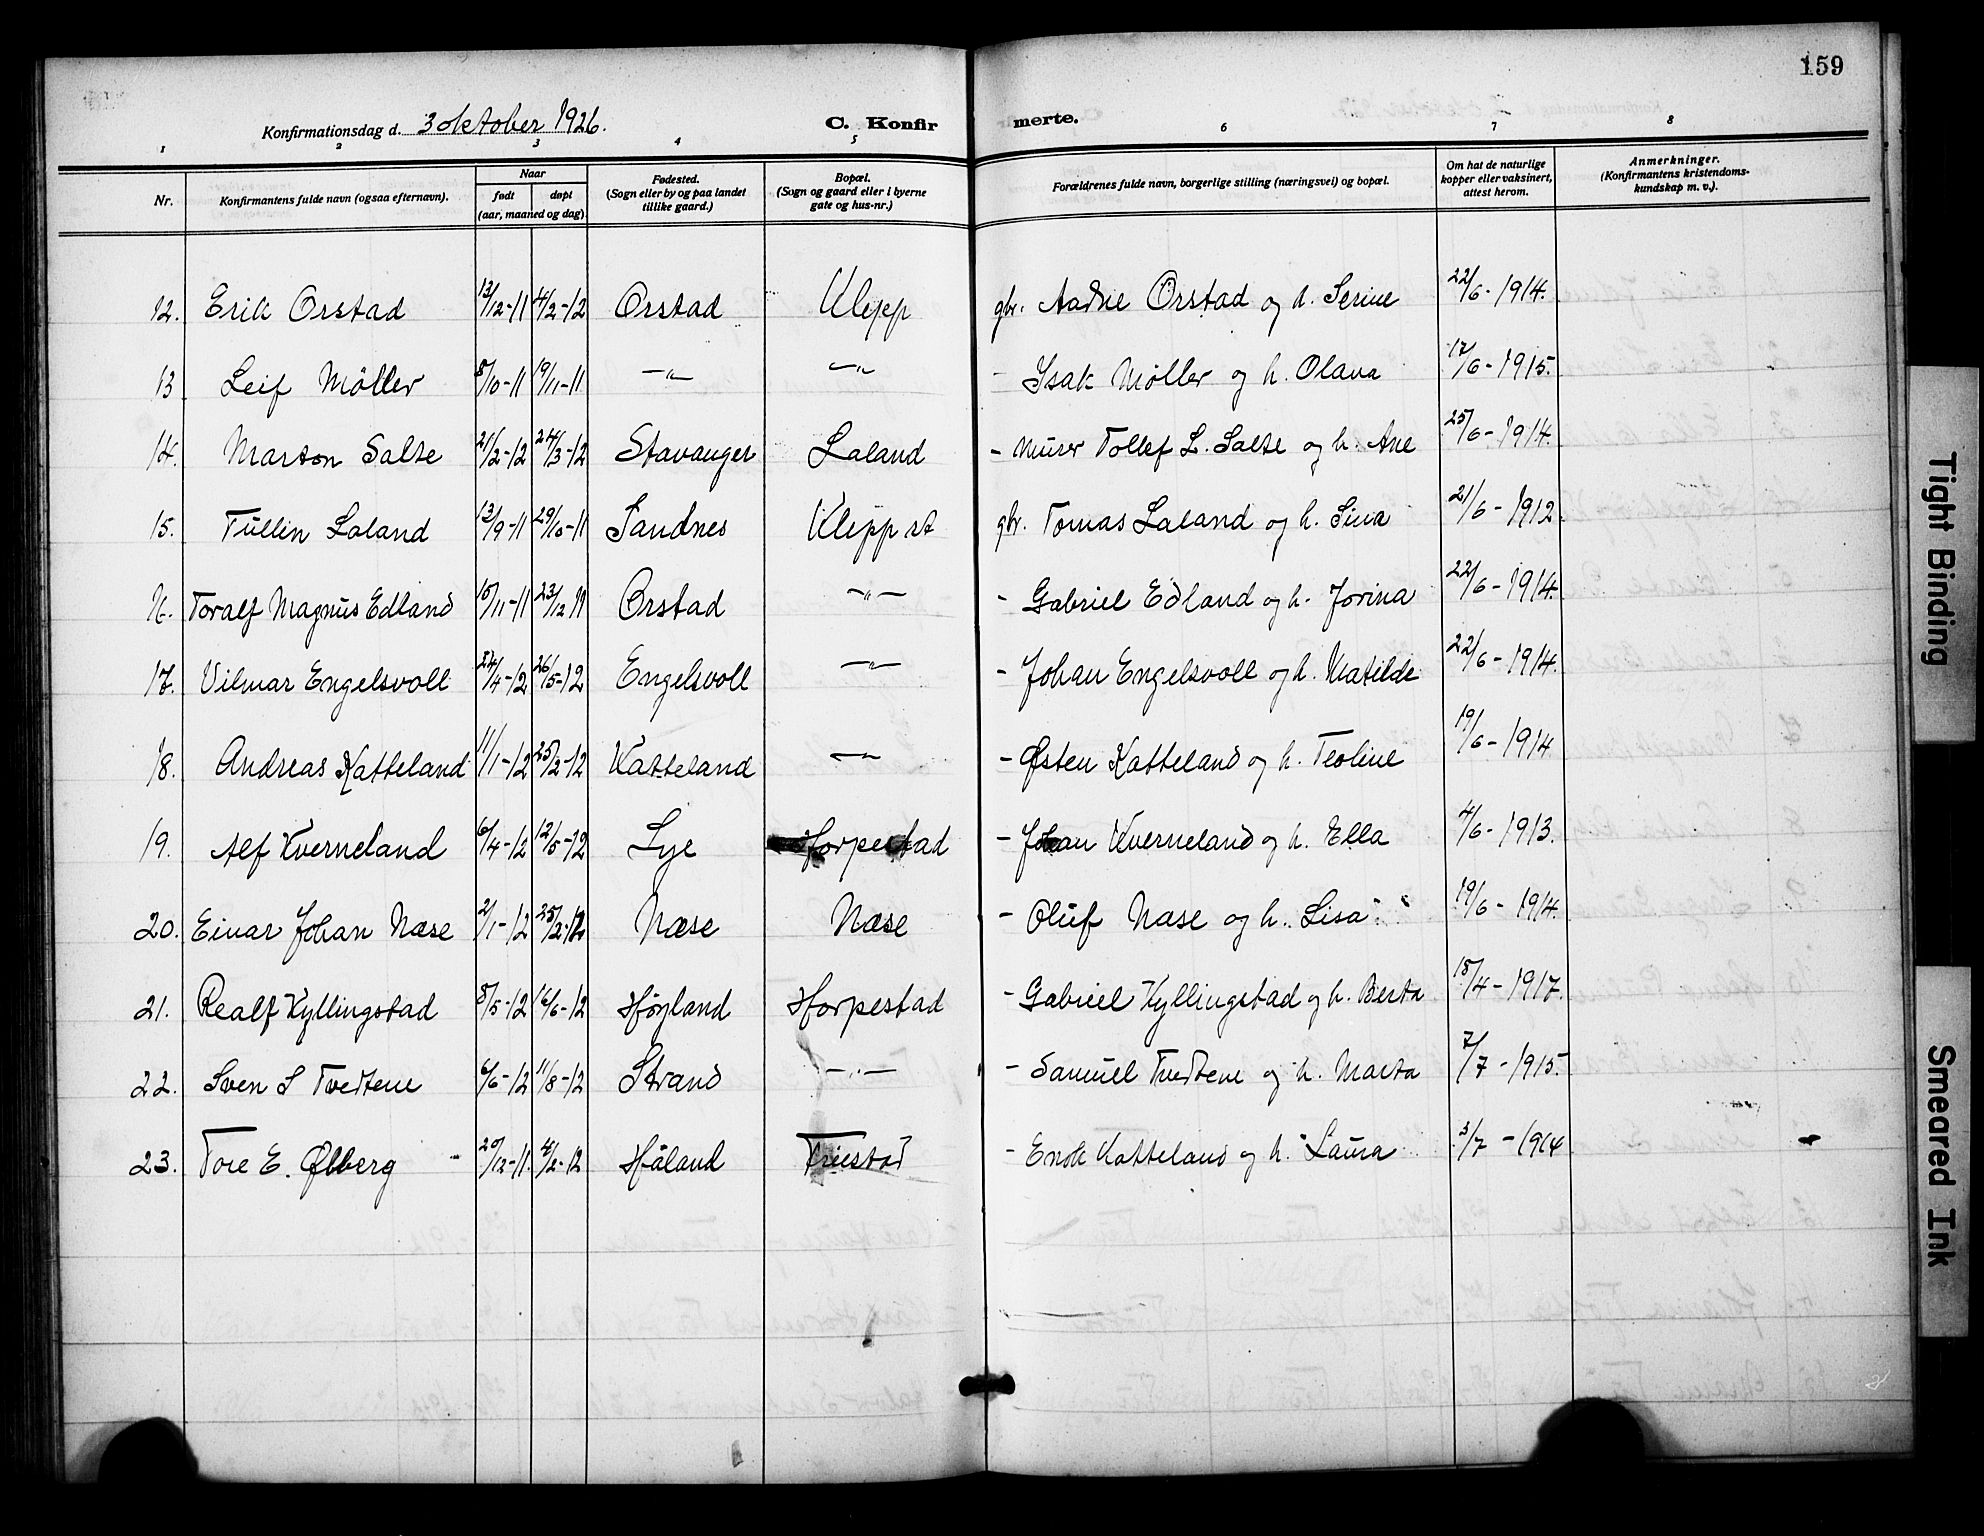 159
Konfirmationsdag d. 3 oktober 1926. C. Konfirmerte.
1 2 3 4 5 6 7 8
Nr. Konfirmantens fulde navn (ogsaa efternavn). Naar født døpt (aar, maaned og dag) Fødested. (Sogn eller by og paa landet tillike gaard.) Bopæl. (Sogn og gaard eller i byerne gate og hus-nr.) Forældrenes fulde navn, borgerlige stilling (næringsvei) og bopæl. Om hat de naturlige kopper eller vaksinert, attest herom. Anmerkninger. (Konfirmantens kristendomskundskap m. v.).
12. Erik Orstad 13/12-11 4/2-12 Orstad Klepp gbr. Aadne Orstad og h. Serine 22/6-1914.
13 Leif Möller 8/10-11 19/11-11 —„— —„— - Isak Møller og h. Olava 17/6-1915.
14. Marton Salte 21/2-12 24/3-12 Stavanger Laland - murer Tollef L. Salte og h. Ane 25/6-1914.
15. Tullin Laland 13/9-11 29/10-11 Sandnes Klepp st gbr. Tomas Laland og h. Sina 21/6-1912.
16. Toralf Magnus Edland 15/11-11 23/12 11 Orstad —„— - Gabriel Edland og h. Jorina 22/6-1914.
17. Vilmar Engelsvoll 24/4-12 26/5-12 Engelsvoll —„— - Johan Engelsvoll og h. Matilde 22/6-1914.
18. Andreas Katteland 11/1-12 25/2-12 Katteland —„— - Østen Katteland og h. Teoline 19/6-1914
19. Alf Kverneland 6/4-12 12/5-12 Lye Horpestad - Johan Kverneland og h. Ella 4/6-1913.
20. Einar Johan Næse 2/1-12 25/2-12 Næse Næse - Oluf Næse og h. Lisa 19/6-1914.
21. Realf Kyllingstad 8/5-12 16/6-12 Höyland Horpestad - Gabriel Kyllingstad og h. Berta 18/4-1917.
22. Sven S Tvedtene 6/6-12 11/8-12 Strand —„— - Samuel Tvedtene og h. Marta 7/7-1915.
23. Tore E. Ølberg 20/12-11. 4/2-12 Håland Friestad - Enok Katteland og h. Laura 3/7-1914
Tight Binding
Smeared Ink